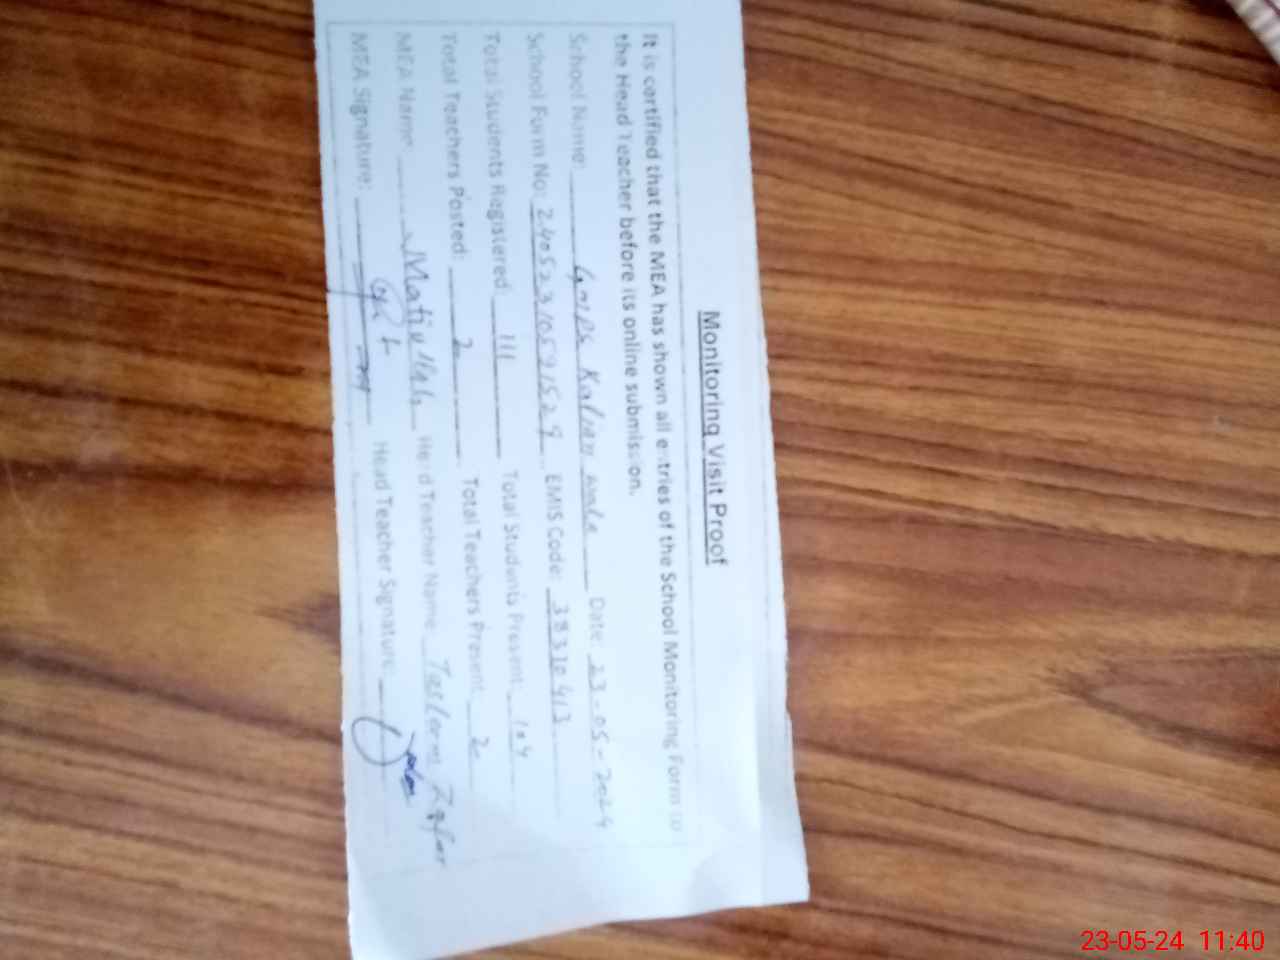 Monitoring Visit Proof
It is certified that the MEA has shown all entries of the School Monitoring Form to
the Head Teacher before its online submission.
School Name: Kalian wala Date: 23-05-2024
School Form No: EMIS Code: 38310413
Total Students Registered 111 Total Students Present: 104
Total Teachers Posted: 2 Total Teachers Present 2
MEA Name Matiullah Head Teacher Name Tasleem Zafar
MEA Signature: Head Teacher Signature
23-05-24 11:40